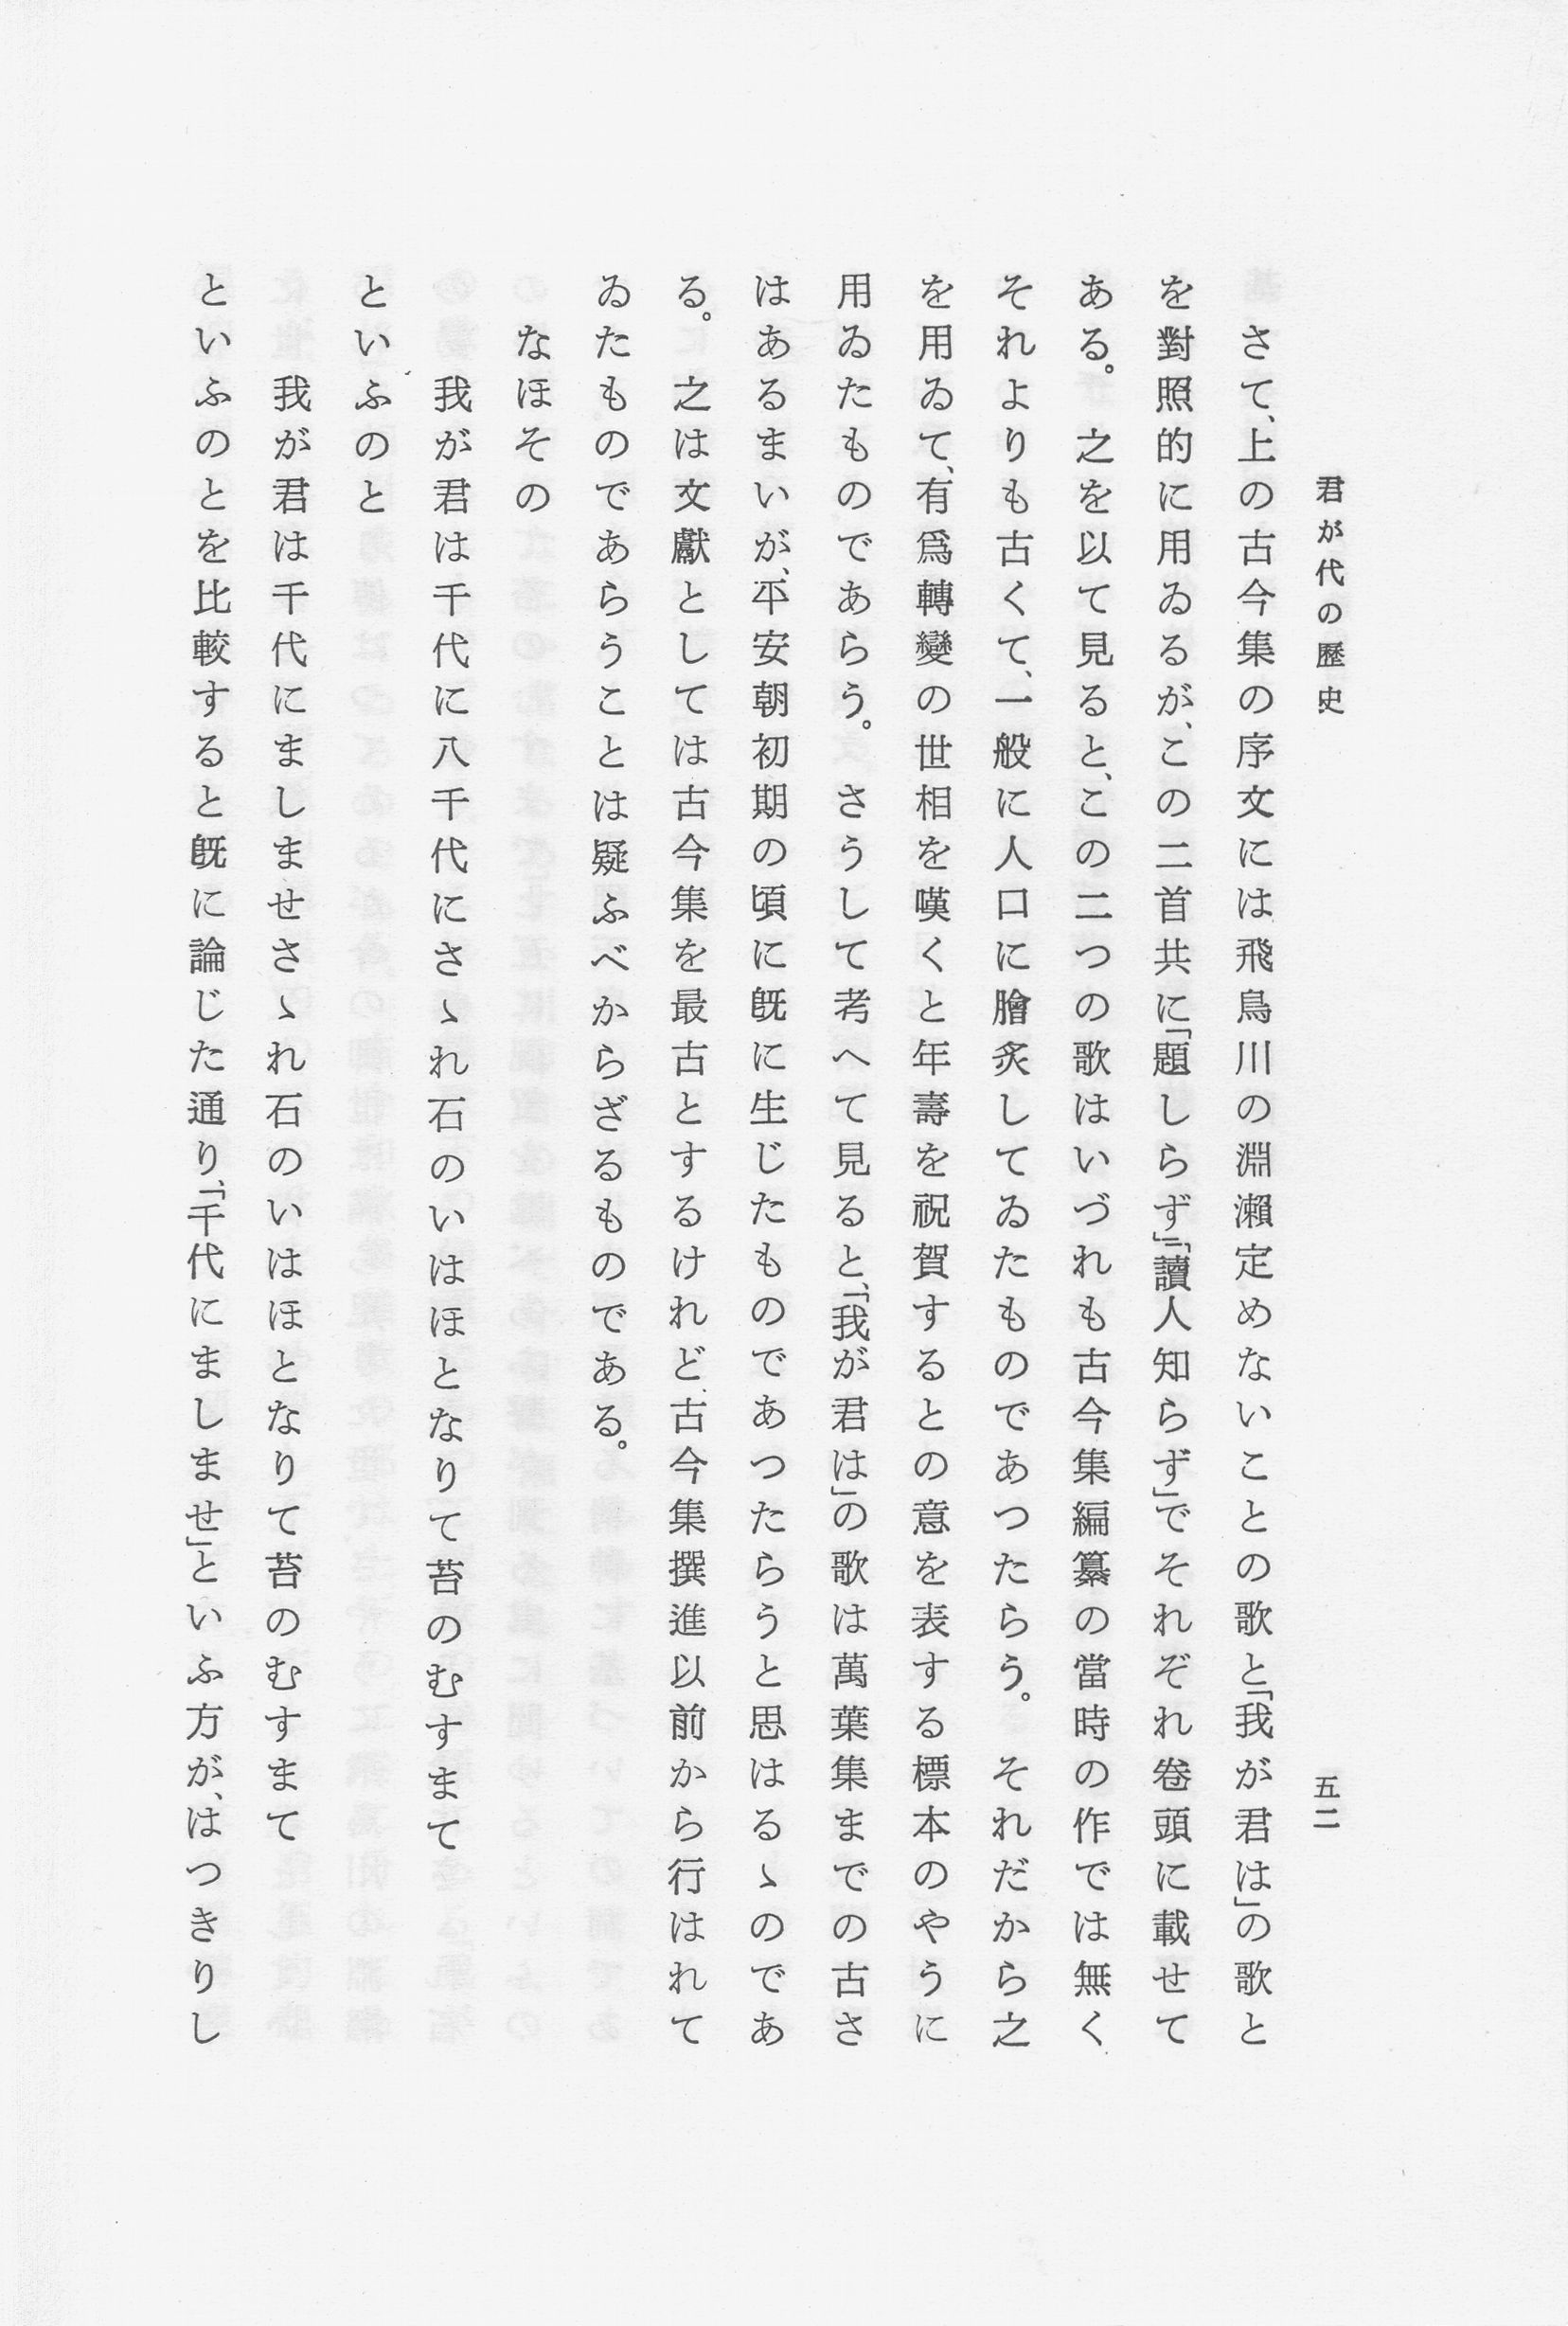 君が代の歴史
五二
さて、上の古今集の序文には飛鳥川の淵瀬定めないことの歌と「我が君は」の歌と
を對照的に用ゐるが、この二首共に「題しらず」「讀人知らず」でそれぞれ卷頭に載せて
ある。之を以て見ると、この二つの歌はいづれも古今集編纂の當時の作では無く
それよりも古くて、一般に人口に膾炙してゐたものであつたらう。それだから之
を用ゐて、有爲轉變の世相を嘆くと年壽を祝賀するとの意を表する標本のやうに
用ゐたものであらう。さうして考へて見ると、「我が君は」の歌は萬葉集までの古さ
はあるまいが、平安朝初期の頃に既に生じたものであつたらうと思はるゝのであ
る。之は文獻としては古今集を最古とするけれど古今集撰進以前から行はれて
ゐたものであらうことは疑ふべからざるものである。
なほその
我が君は千代に八千代にさゝれ石のいはほとなりて苔のむすまて
といふのと
我が君は千代にましませさゝれ石のいはほとなりて苔のむすまて
といふのとを比較すると既に論じた通り、「千代にましませ」といふ方が、はつきりし